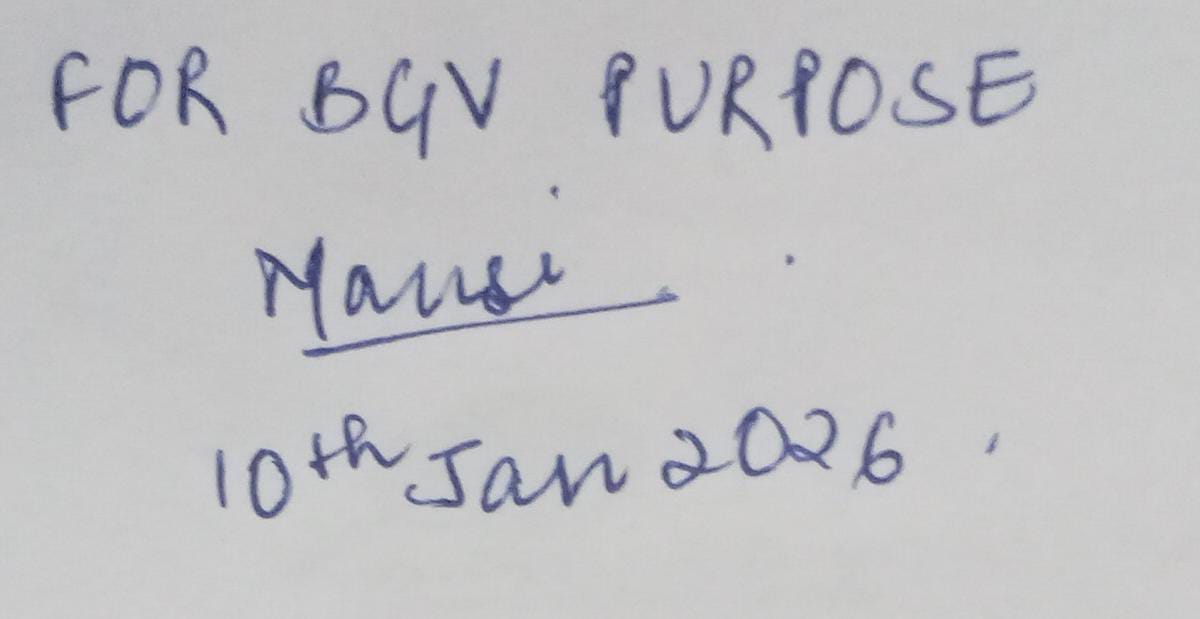 FOR BGV PURPOSE
Mansi
10th Jan 2026